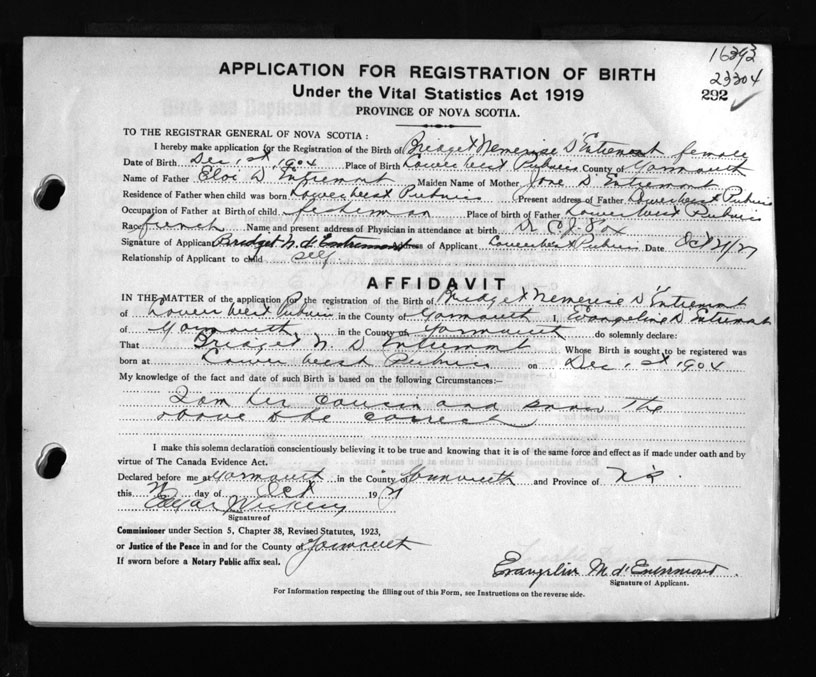 16393
23304
292
APPLICATION FOR REGISTRATION OF BIRTH
Under the Vital Statistics Act 1919
PROVINCE OF NOVA SCOTIA.
TO THE REGISTRAR GENERAL OF NOVA SCOTIA :
I hereby make application for the Registration of the Birth of Bridget Nemerise D'Entremont female
Date of Birth Dec 1st 1904 Place of Birth Lower West Pubnico County of Yarmouth
Name of Father Eloi D'Entremont Maiden Name of Mother Jane D'Entremont
Residence of Father when child was born Lower West Pubnico Present address of Father Lower West Pubnico
Occupation of Father at Birth of child fisherman Place of birth of Father Lower West Pubnico
Race french Name and present address of Physician in attendance at birth Dr C. J. Fox
Signature of Applicant Bridget N. d'Entremont of Applicant Lower West Pubnico Date Oct
Relationship of Applicant to child self
AFFIDAVIT
IN THE MATTER of the application for the registration of the Birth of Bridget Nemerise D'Entremont
of Lower West Pubnico in the County of Yarmouth I, Evangeline D'Entremont
of Yarmouth in the County of Yarmouth do solemnly declare:
That Bridget N. D'Entremont Whose Birth is sought to be registered was
born at Lower West Pubnico on Dec 1st 1904
My knowledge of the fact and date of such Birth is based on the following Circumstances:—
I am her cousin and know the
above to be correct
I make this solemn declaration conscientiously believing it to be true and knowing that it is of the same force and effect as if made under oath and by
virtue of The Canada Evidence Act.
Declared before me at Yarmouth in the County of Yarmouth and Province of N.S.
this day of Oct 19
Signature of
Commissioner under Section 5, Chapter 38, Revised Statutes, 1923,
or Justice of the Peace in and for the County of Yarmouth
If sworn before a Notary Public affix seal.
Evangeline M d'Entremont
Signature of Applicant.
For Information respecting the filling out of this Form, see Instructions on the reverse side.